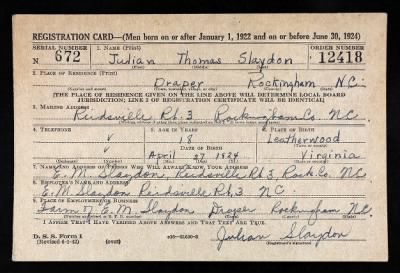 REGISTRATION CARD—(Men born on or after January 1, 1922 and on or before June 30, 1924)
SERIAL NUMBER 1. NAME (Print) ORDER NUMBER
N 672 Julian Thomas Slaydon 12418
(First) (Middle) (Last)
2. PLACE OF RESIDENCE (Print)
Draper Rockingham N.C.
(Number and street) (Town, township, village, or city) (County) (State)
[THE PLACE OF RESIDENCE GIVEN ON THE LINE ABOVE WILL DETERMINE LOCAL BOARD
JURISDICTION; LINE 2 OF REGISTRATION CERTIFICATE WILL BE IDENTICAL]
3. MAILING ADDRESS
Reidsville Rt. 3 Rockingham Co. N.C.
4. TELEPHONE 5. AGE IN YEARS 6. PLACE OF BIRTH
18 Leatherwood
DATE OF BIRTH
April 27 1924 Virginia
(Exchange) (Number) (Mo.) (Day) (Yr.) (State or country)
7. NAME AND ADDRESS OF PERSON WHO WILL ALWAYS KNOW YOUR ADDRESS
E. M. Slaydon, Reidsville Rt. 3, Rock. Co. N.C.
8. EMPLOYER'S NAME AND ADDRESS
E. M. Slaydon Reidsville Rt. 3 N.C.
9. PLACE OF EMPLOYMENT OR BUSINESS
Farm of E. M. Slaydon Draper Rockingham N.C.
(Number and street or R. F. D. number) (Town) (County) (State)
I AFFIRM THAT I HAVE VERIFIED ABOVE ANSWERS AND THAT THEY ARE TRUE.
D. S. S. Form 1
(Revised 6-1-42) (over) Julian Slaydon
(Registrant's signature)